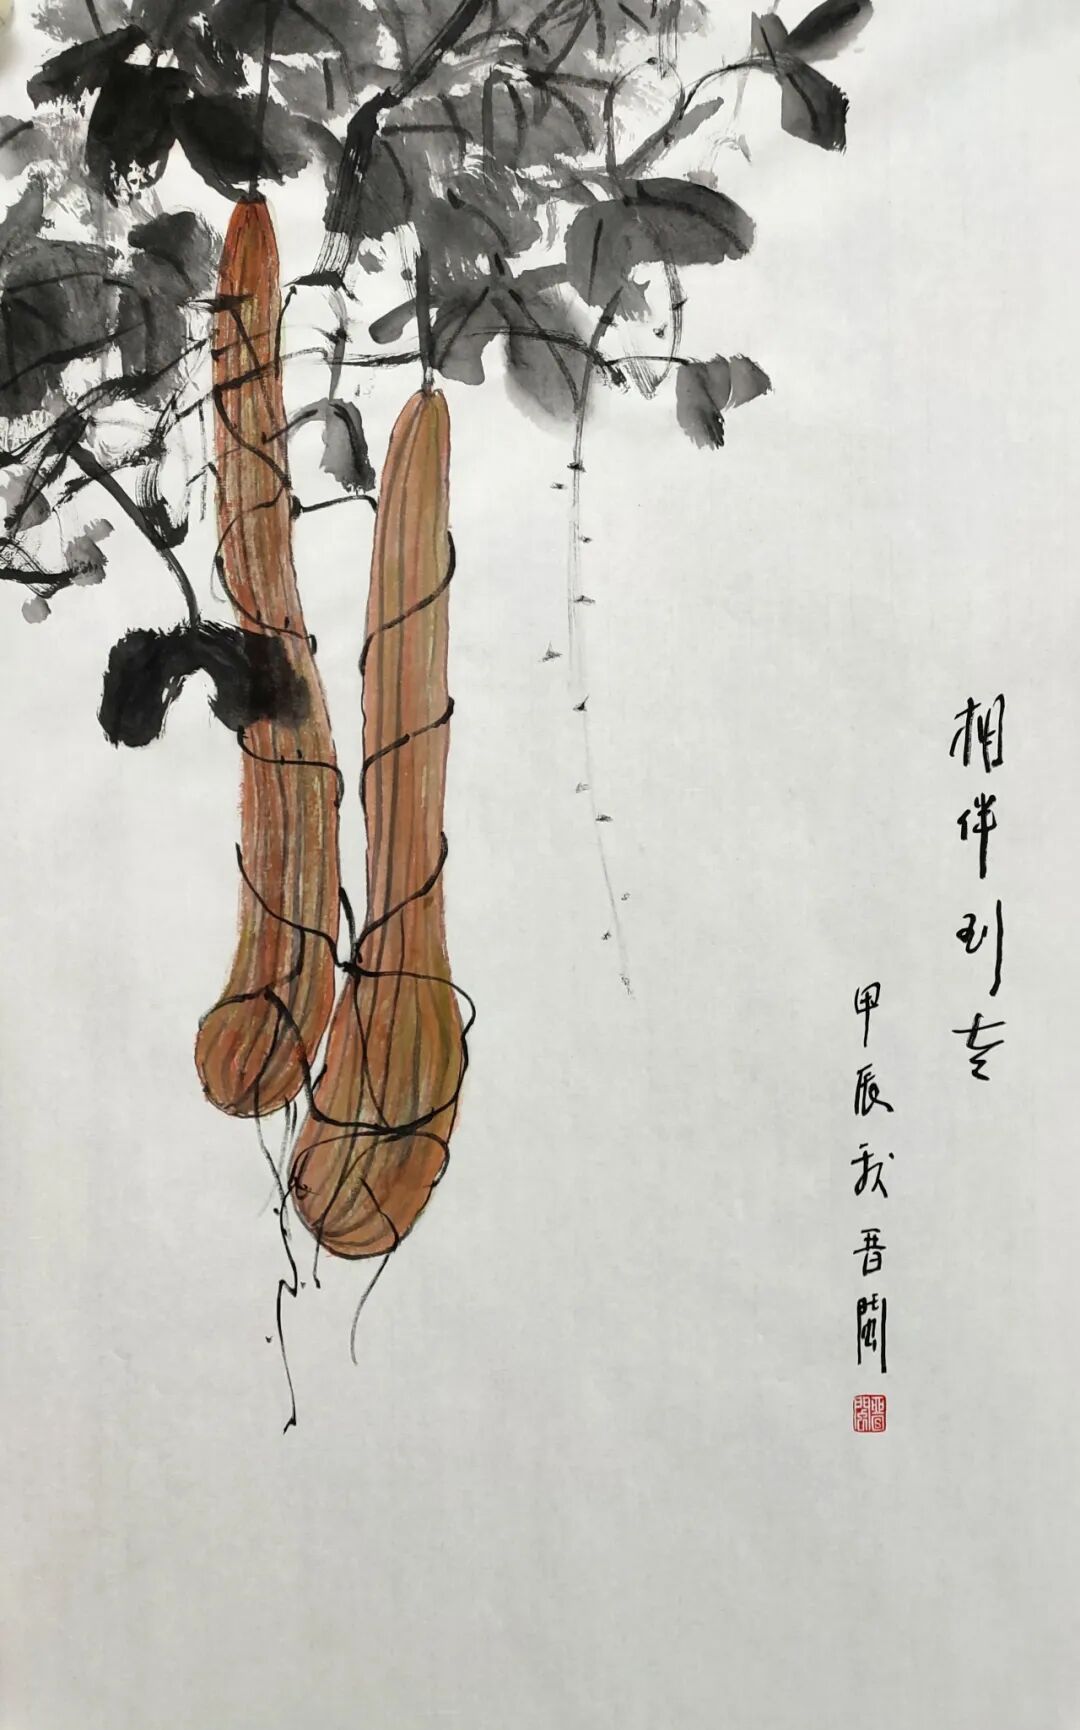 相伴到老
甲辰秋晋閩